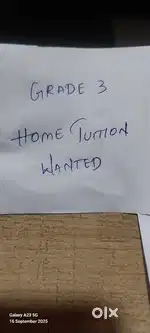 GRADE 3
HOME TUITION
WANTED
Galaxy A23 5G
16 September 2025
olx